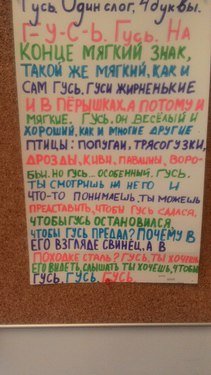 Гусь. Один слог, 4 буквы.
Г-У-С-Ь. ГУСЬ. НА
КОНЦЕ МЯГКИЙ ЗНАК,
ТАКОЙ ЖЕ МЯГКИЙ, КАК И
САМ ГУСЬ. ГУСИ ЖИРНЕНЬКИЕ
И В ПЁРЫШКАХ. А ПОТОМУ И
МЯГКИЕ. ГУСЬ, ОН ВЕСЁЛЫЙ И
ХОРОШИЙ, КАК И МНОГИЕ ДРУГИЕ
ПТИЦЫ: ПОПУГАИ, ТРЯСОГУЗКИ,
ДРОЗДЫ, КИВИ, ПАВЛИНЫ, ВОРО-
БЬИ. НО ГУСЬ... ОСОБЕННЫЙ. ГУСЬ.
ТЫ СМОТРИШЬ НА НЕГО И
ЧТО-ТО ПОНИМАЕШЬ, ТЫ МОЖЕШЬ
ПРЕДСТАВИТЬ, ЧТОБЫ ГУСЬ СДАЛСЯ,
ЧТОБЫ ГУСЬ ОСТАНОВИЛСЯ,
ЧТОБЫ ГУСЬ ПРЕДАЛ? ПОЧЕМУ В
ЕГО ВЗГЛЯДЕ СВИНЕЦ, А В
ПОХОДКЕ СТАЛЬ? ГУСЬ, ТЫ ХОЧЕШЬ
ЕГО ВИДЕТЬ, СЛЫШАТЬ ТЫ ХОЧЕШЬ, ЧТОБЫ
ГУСЬ, ГУСЬ, ГУСЬ